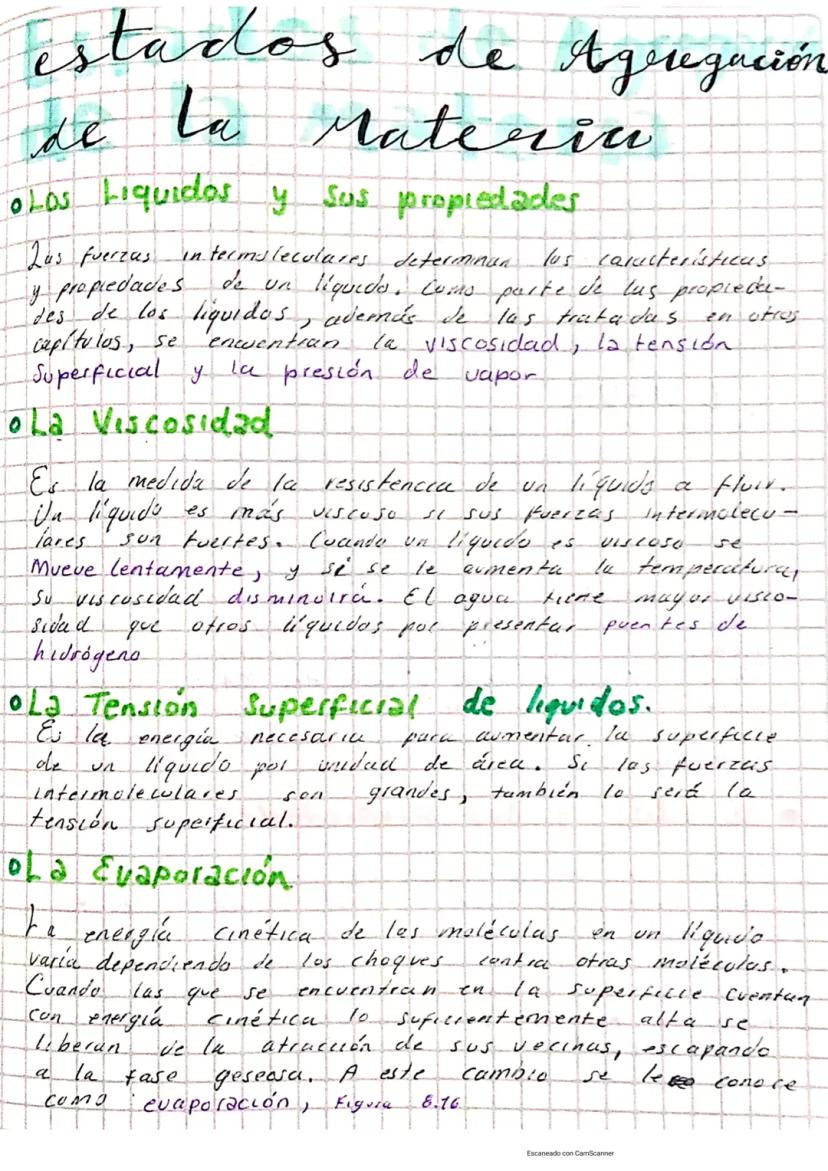 estados de Agregación
de la Materia
Los Liquidos y sus propiedades
Las fuerzas intermoleculares determinan las características
y propiedades de un líquido. Como parte de las propieda-
des de los líquidos, además de las tratadas en otros
capítulos, se encuentran la viscosidad, la tensión
Superficial y la presión de vapor
La Viscosidad
Es la medida de la resistencia de un líquido a fluir.
Un líquido es más viscoso si sus fuerzas intermolecu-
lares son fuertes. Cuando un líquido es viscoso se
Mueve lentamente, y si se le aumenta la temperatura,
su viscosidad disminuirá. El agua tiene mayor visco-
sidad que otros líquidos por presentar puentes de
hidrógeno
La Tensión Superficial de liquidos.
Es la energía necesaria para aumentar la superficie
de un líquido por unidad de área. Si las fuerzas
intermoleculares son grandes, también lo será la
tensión superficial.
La Evaporación
La energía cinética de las moléculas en un líquido
varía dependiendo de los choques contra otras moléculas.
Cuando las que se encuentran en la superficie cuentan
con energía cinética lo suficientemente alta se
liberan de la atracción de sus vecinas, escapando
a la fase geseosa. A este cambio se le conoce
como evaporación, Figura 8.16
Escaneado con CamScanner